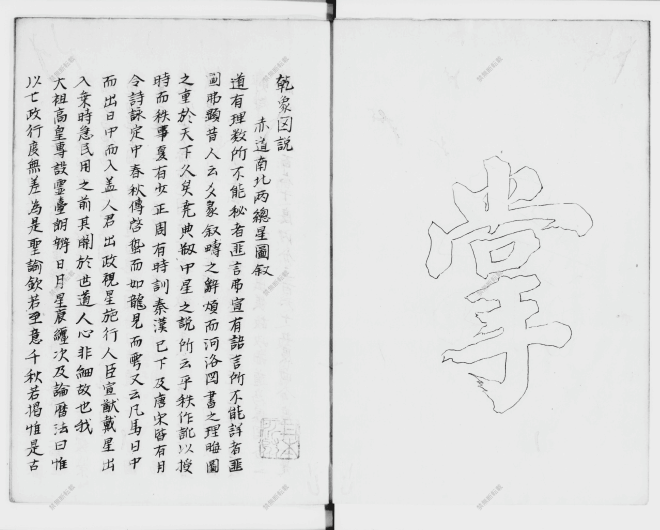 掌
乾象図説
赤道南北两總星圖叙
道有理数所不能秘者匪言弗宣有語言所不能詳者匪
圖弗顯昔人云爻象叙疇之辭煩而河洛図書之理晦圖
之重於天下久矣堯典剏中星之説所云平秩作訛以授
時而秩事夏有少正周有時訓秦漢已下及唐宋皆有月
令詩詠定中春秋傳啓蟄而如龍見而雩又云凡馬日中
而出日中而入盖人君出政視星施行人臣宣猷戴星出
入来時急民用之前其関於世道人心非細故也我
大祖高皇專設靈臺朗辨日月星辰躔次及論暦法曰惟
以七政行度無差為是聖諭欽若至意千秋若揭惟是古